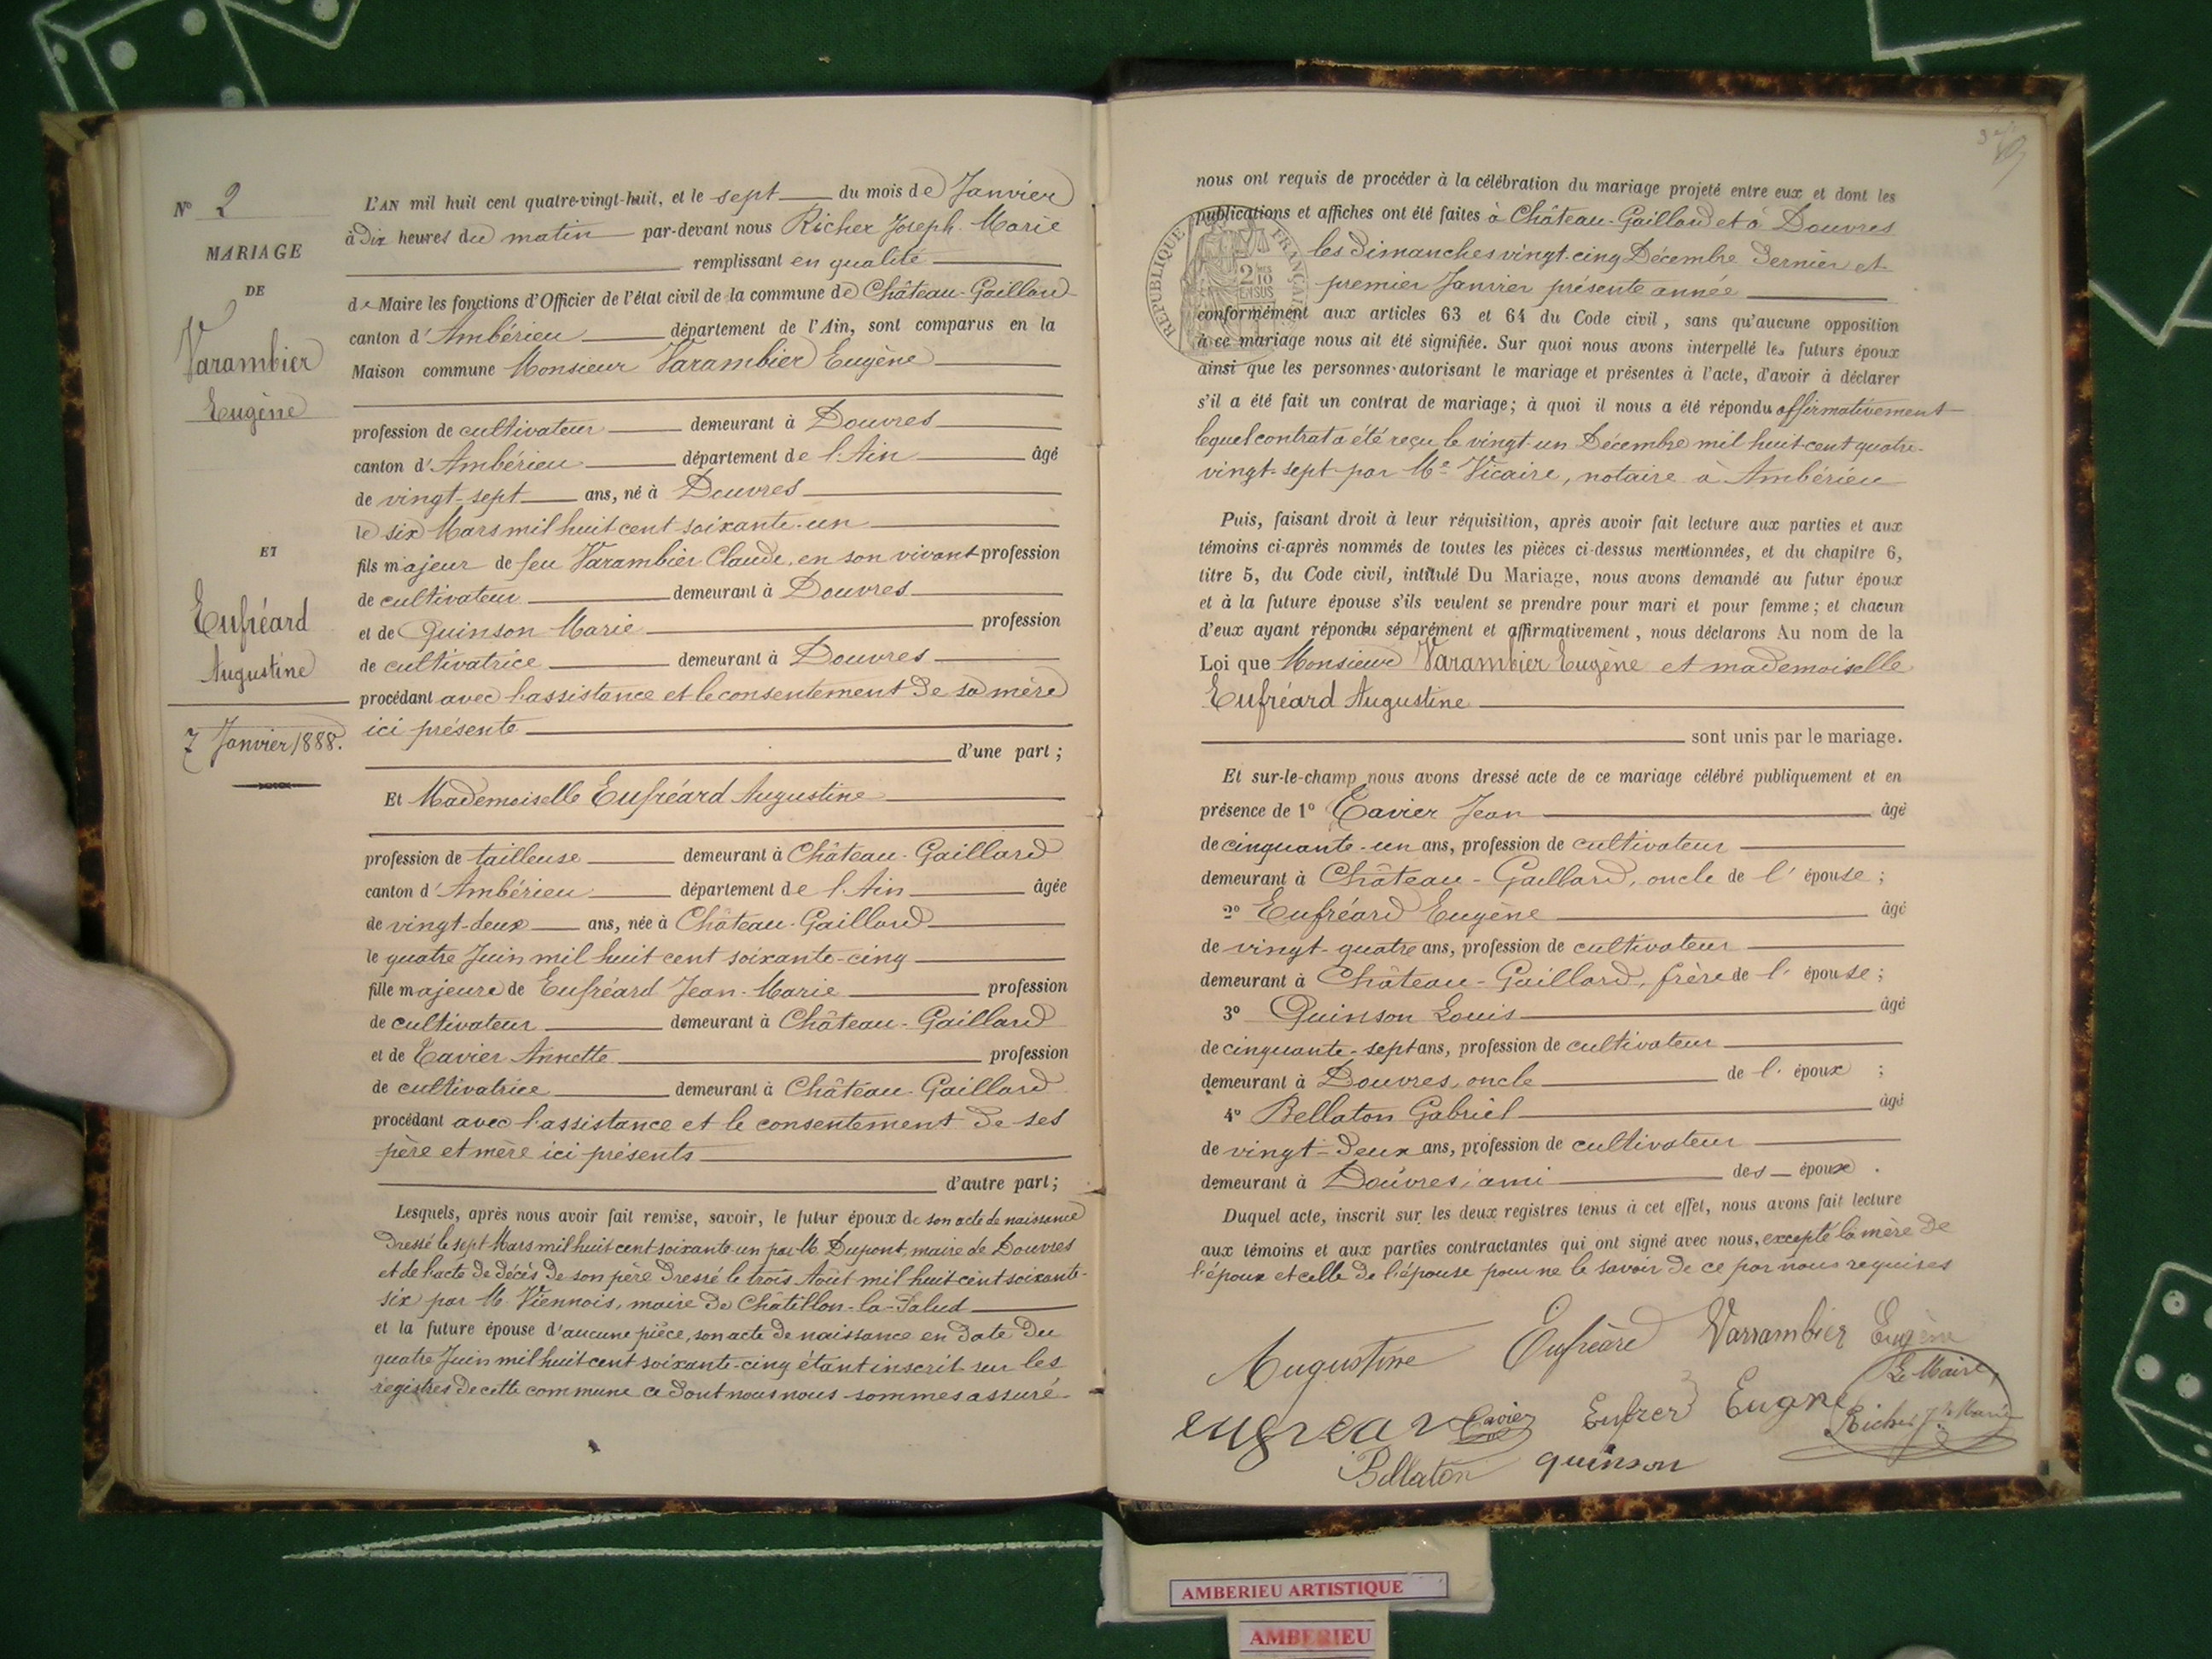 N° 2
MARIAGE
DE
Varambier
Eugène
ET
Eufréard
Augustine
7 Janvier 1888.
L'AN mil huit cent quatre-vingt-huit, et le sept du mois de Janvier
à Dix heures du matin par-devant nous Richer Joseph-Marie
remplissant en qualité
de Maire les fonctions d'Officier de l'état civil de la commune de Château-Gaillard
canton d'Ambérieu département de l'Ain, sont comparus en la
Maison commune Monsieur Varambier Eugène
profession de cultivateur demeurant à Douvres
canton d'Ambérieu département de l'Ain âgé
de vingt-sept ans, né à Douvres
le six Mars mil huit cent soixante-un
fils majeur de feu Varambier Claude, en son vivant profession
de cultivateur demeurant à Douvres
et de Quinson Marie profession
de cultivatrice demeurant à Douvres
procédant avec l'assistance et le consentement de sa mère
ici présente
d'une part ;
Et Mademoiselle Eufréard Augustine
profession de tailleuse demeurant à Château-Gaillard
canton d'Ambérieu département de l'Ain âgée
de vingt-deux ans, née à Château-Gaillard
le quatre Juin mil huit cent soixante-cinq
fille majeure de Eufréard Jean-Marie profession
de cultivateur demeurant à Château-Gaillard
et de Cavier Annette profession
de cultivatrice demeurant à Château-Gaillard
procédant avec l'assistance et le consentement de ses
père et mère ici présents
d'autre part ;
Lesquels, après nous avoir fait remise, savoir, le futur époux de son acte de naissance
Dressé le sept Mars mil huit cent soixante-un par M. Dupont, maire de Douvres
et de l'acte de décès de son père Dressé le trois Août mil huit cent soixante-
six par M. Viennois, maire de Châtillon-la-Palud
et la future épouse d'aucune pièce, son acte de naissance en date du
quatre Juin mil huit cent soixante-cinq étant inscrit sur les
registres de cette commune ce dont nous nous sommes assuré
nous ont requis de procéder à la célébration du mariage projeté entre eux et dont les
publications et affiches ont été faites à Château-Gaillard et à Douvres
les Dimanches vingt-cinq Décembre Dernier et
premier Janvier présente année
REPUBLIQUE FRANÇAISE
2/10
EN SUS
conformément aux articles 63 et 64 du Code civil, sans qu'aucune opposition
à ce mariage nous ait été signifiée. Sur quoi nous avons interpellé les futurs époux
ainsi que les personnes autorisant le mariage et présentes à l'acte, d'avoir à déclarer
s'il a été fait un contrat de mariage; à quoi il nous a été répondu affirmativement
lequel contrat a été reçu le vingt-un Décembre mil huit-cent quatre-
vingt-sept par Me Vicaire, notaire à Ambérieu
Puis, faisant droit à leur réquisition, après avoir fait lecture aux parties et aux
témoins ci-après nommés de toutes les pièces ci-dessus mentionnées, et du chapitre 6,
titre 5, du Code civil, intitulé Du Mariage, nous avons demandé au futur époux
et à la future épouse s'ils veulent se prendre pour mari et pour femme; et chacun
d'eux ayant répondu séparément et affirmativement, nous déclarons Au nom de la
Loi que Monsieur Varambier Eugène et mademoiselle
Eufréard Augustine
sont unis par le mariage.
Et sur-le-champ nous avons dressé acte de ce mariage célébré publiquement et en
présence de 1° Cavier Jean âgé
de cinquante-un ans, profession de cultivateur
demeurant à Château-Gaillard, oncle de l'épouse ;
2° Eufréard Eugène âgé
de vingt-quatre ans, profession de cultivateur
demeurant à Château-Gaillard, frère de l'épouse ;
3° Quinson Louis âgé
de cinquante-sept ans, profession de cultivateur
demeurant à Douvres, oncle de l'époux ;
4° Bellaton Gabriel âgé
de vingt-deux ans, profession de cultivateur
demeurant à Douvres, ami des époux .
Duquel acte, inscrit sur les deux registres tenus à cet effet, nous avons fait lecture
aux témoins et aux parties contractantes qui ont signé avec nous, excepté la mère de
l'époux et celle de l'épouse pour ne le savoir de ce par nous requises
Augustine Eufréard Varrambier Eugène
Le Maire,
Cavier Eufrer Eugne Richer Jh Marie
Bellaton quinson
AMBERIEU ARTISTIQUE
AMBERIEU